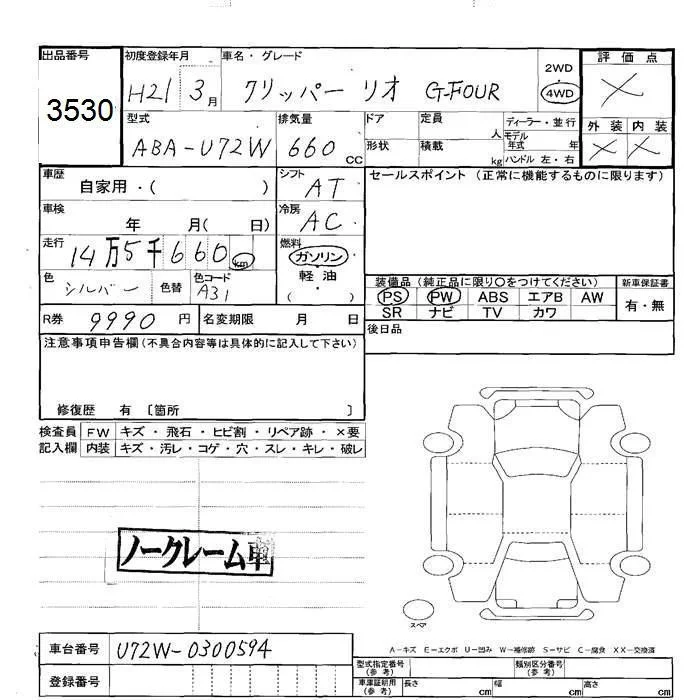 出品番号
3530
初度登録年月
H21 3月
車名・グレード
クリッパー リオ G-FOUR
2WD
4WD
評価点
×
型式
ABA-U72W
排気量
660cc
ドア
形状
定員 人
積載 kg
ディーラー・並行
モデル年式 年
ハンドル 左・右
外装 内装
× ×
車歴
自家用・( )
シフト
AT
セールスポイント (正常に機能するものに限ります)
車検
年 月( 日)
冷房
AC
走行
14万5千660km
燃料
ガソリン
軽油
( )
色
シルバー
色替
色コード
A31
装備品 (純正品に限り○をつけてください)
PS PW ABS エアB AW
SR ナビ TV カワ
新車保証書
有・無
R券 9990円
名変期限 月 日
後日品
注意事項申告欄 (不具合内容等は具体的に記入して下さい)
修復歴 有 〔箇所 〕
検査員 FW キズ・飛石・ヒビ割・リペア跡・×要
記入欄 内装 キズ・汚レ・コゲ・穴・スレ・キレ・破レ
ノークレーム車
スペア
A-キズ E-エクボ U-凹み W-補修跡 S-サビ C-腐食 XX-交換済
車台番号 U72W-0300594
登録番号
型式指定番号(参考)
類別区分番号(参考)
車庫証明用(参考) 長さ cm 幅 cm 高さ cm